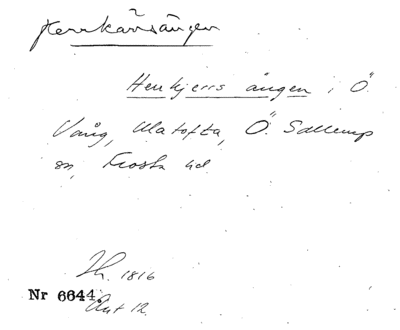 Herrkärsängen
Herrkjerrs ängen i Ö.
Vång, Ulatofta, Ö. Sallerup
sn, Frosta hd
Lh. 1816
Nr 6644. Akt 12.